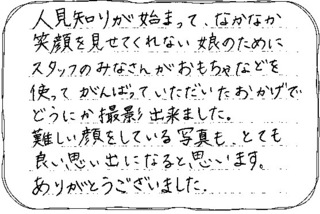 人見知りが始まって、なかなか
笑顔を見せてくれない娘のために
スタッフのみなさんがおもちゃなどを
使ってがんばっていただいたおかげで
どうにか撮影出来ました。
難しい顔をしている写真も、とても
良い思い出になると思います。
ありがとうございました。